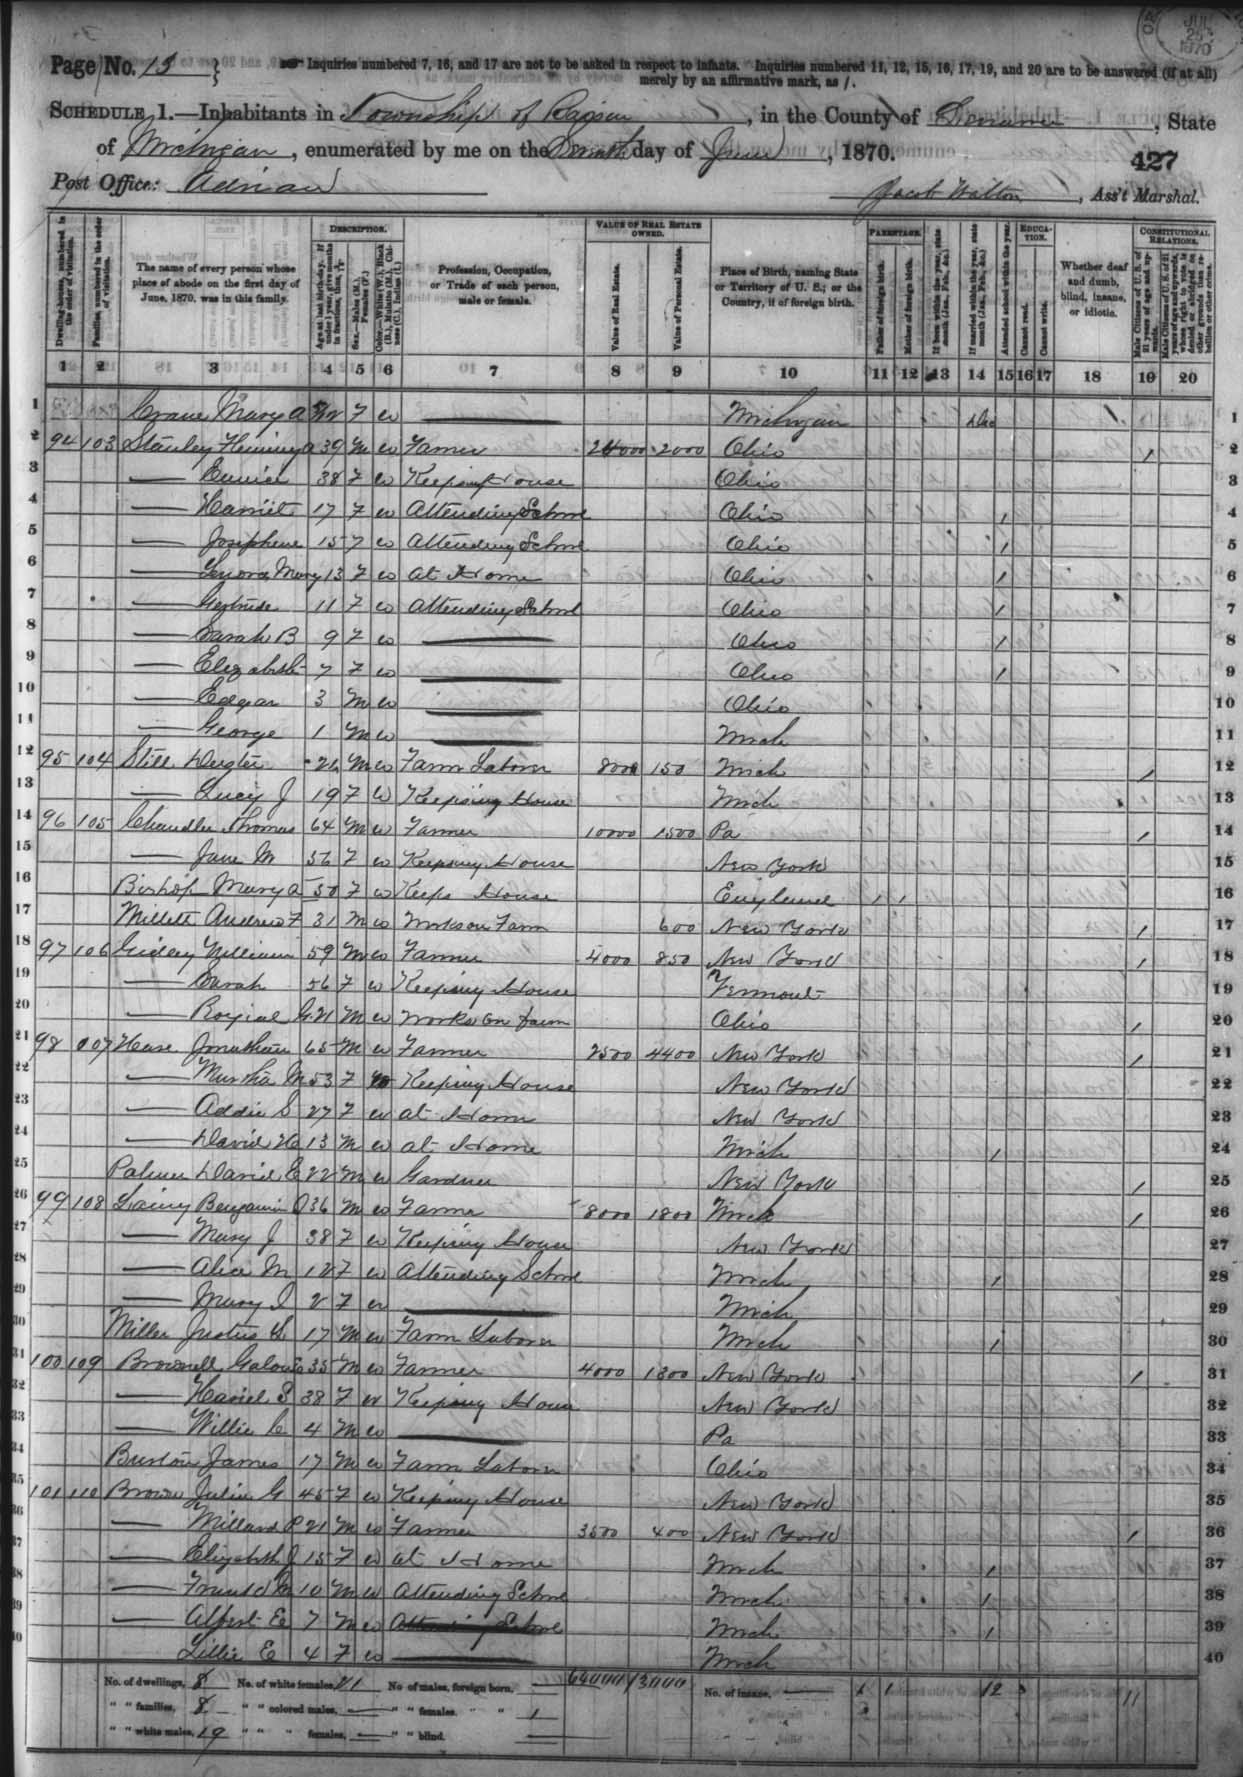 JUL 25 1870
Page No. 13 } Inquiries numbered 7, 16, and 17 are not to be asked in respect to infants. Inquiries numbered 11, 12, 15, 16, 17, 19, and 20 are to be answered (if at all)
merely by an affirmative mark, as /.
Schedule 1.—Inhabitants in Township of Raisin, in the County of Lenawee, State
of Michigan, enumerated by me on the day of June, 1870.
427
Post Office: Adrian Jacob Walton, Ass't Marshal.
Dwelling-houses, numbered in the order of visitation.
Families, numbered in the order of visitation.
The name of every person whose place of abode on the first day of June, 1870, was in this family.
Description.
Age at last birth-day. If under 1 year, give months in fractions, thus, 3/12
Sex.—Males (M.), Females (F.)
Color.—White (W.), Black (B.), Mulatto (M.), Chinese (C.), Indian (I.)
Profession, Occupation, or Trade of each person, male or female.
Value of Real Estate Owned.
Value of Real Estate.
Value of Personal Estate.
Place of Birth, naming State or Territory of U. S.; or the Country, if of foreign birth.
Parentage.
Father of foreign birth.
Mother of foreign birth.
If born within the year, state month (Jan., Feb., &c.)
If married within the year, state month (Jan., Feb., &c.)
Education.
Attended school within the year.
Cannot read.
Cannot write.
Whether deaf and dumb, blind, insane, or idiotic.
Constitutional Relations.
Male Citizens of U. S. of 21 years of age and upwards.
Male Citizens of U. S. of 21 years of age and upwards, whose right to vote is denied or abridged on other grounds than rebellion or other crime.
1 2 3 4 5 6 7 8 9 10 11 12 13 14 15 16 17 18 19 20
1 Crane Mary A F W Michigan Dec 1
2 94 103 Stanley 39 M W Farmer 24000 2000 Ohio / 2
3 — Eunice 38 F W Keeping House Ohio 3
4 — Harriet 17 F W Attending School Ohio / 4
5 — Josephine 15 F W Attending School Ohio / 5
6 — Lenora Mary 13 F W At Home Ohio / 6
7 — Gertrude 11 F W Attending School Ohio / 7
8 — Sarah B 9 F W — Ohio / 8
9 — Elizabeth 7 F W — Ohio / 9
10 — Edgar 3 M W — Ohio 10
11 — George 1 M W — Mich 11
12 95 104 Still M W Farm Laborer 8000 150 Mich / 12
13 — Lucy J 19 F W Keeping House Mich 13
14 96 105 Chandler Thomas 64 M W Farmer 10000 1500 Pa / 14
15 — Jane M 56 F W Keeping House New York 15
16 Bishop Mary A 50 F W Keeps House England / / 16
17 Millett Andrew F 31 M W Works on Farm 600 New York / 17
18 97 106 Gidley William 59 M W Farmer 4000 850 New York / 18
19 — Sarah 56 F W Keeping House Vermont 19
20 — Royial G 21 M W Works on Farm Ohio / 20
21 98 107 Hase Jonathan 65 M W Farmer 2500 4400 New York / 21
22 — Martha M 53 F W Keeping House New York 22
23 — Addie S 27 F W At Home New York 23
24 — David H 13 M W At Home Mich / 24
25 Palmer David E 22 M W Gardner New York / 25
26 99 108 Benjamin 36 M W Farmer 8000 1800 Mich / 26
27 — Mary J 38 F W Keeping House New York 27
28 — Alice M 12 F W Attending School Mich / 28
29 — Mary I 2 F W — Mich 29
30 Miller Justus S 17 M W Farm Laborer Mich / 30
31 100 109 Brownell 35 M W Farmer 4000 1300 New York / 31
32 — Hariet S 38 F W Keeping House New York 32
33 — Willie C 4 M W — Pa 33
34 Burton James 17 M W Farm Laborer Ohio 34
35 101 110 Brown Julia G 45 F W Keeping House New York 35
36 — Millard P 21 M W Farmer 3500 400 New York / 36
37 — Elizabeth J 15 F W At Home Mich / 37
38 — Frank M 10 M W Attending School Mich / 38
39 — Albert E 7 M W Attending School Mich / 39
40 Lillie E 4 F W — Mich 40
No. of dwellings, 8 No. of white females, 21 No of males, foreign born, — 64000 13000 No. of insane, — 1 1 12 11
" " families, 8 " " colored males, — " " females, " " 1
" " white males, 19 " " " females, — " " blind. —